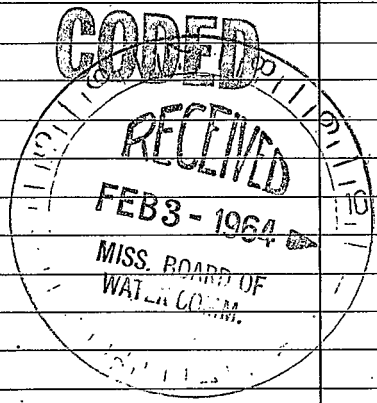 CODED
RECEIVED
FEB 3 - 1964
MISS. BOARD OF
WATER COMM.
8
9
10